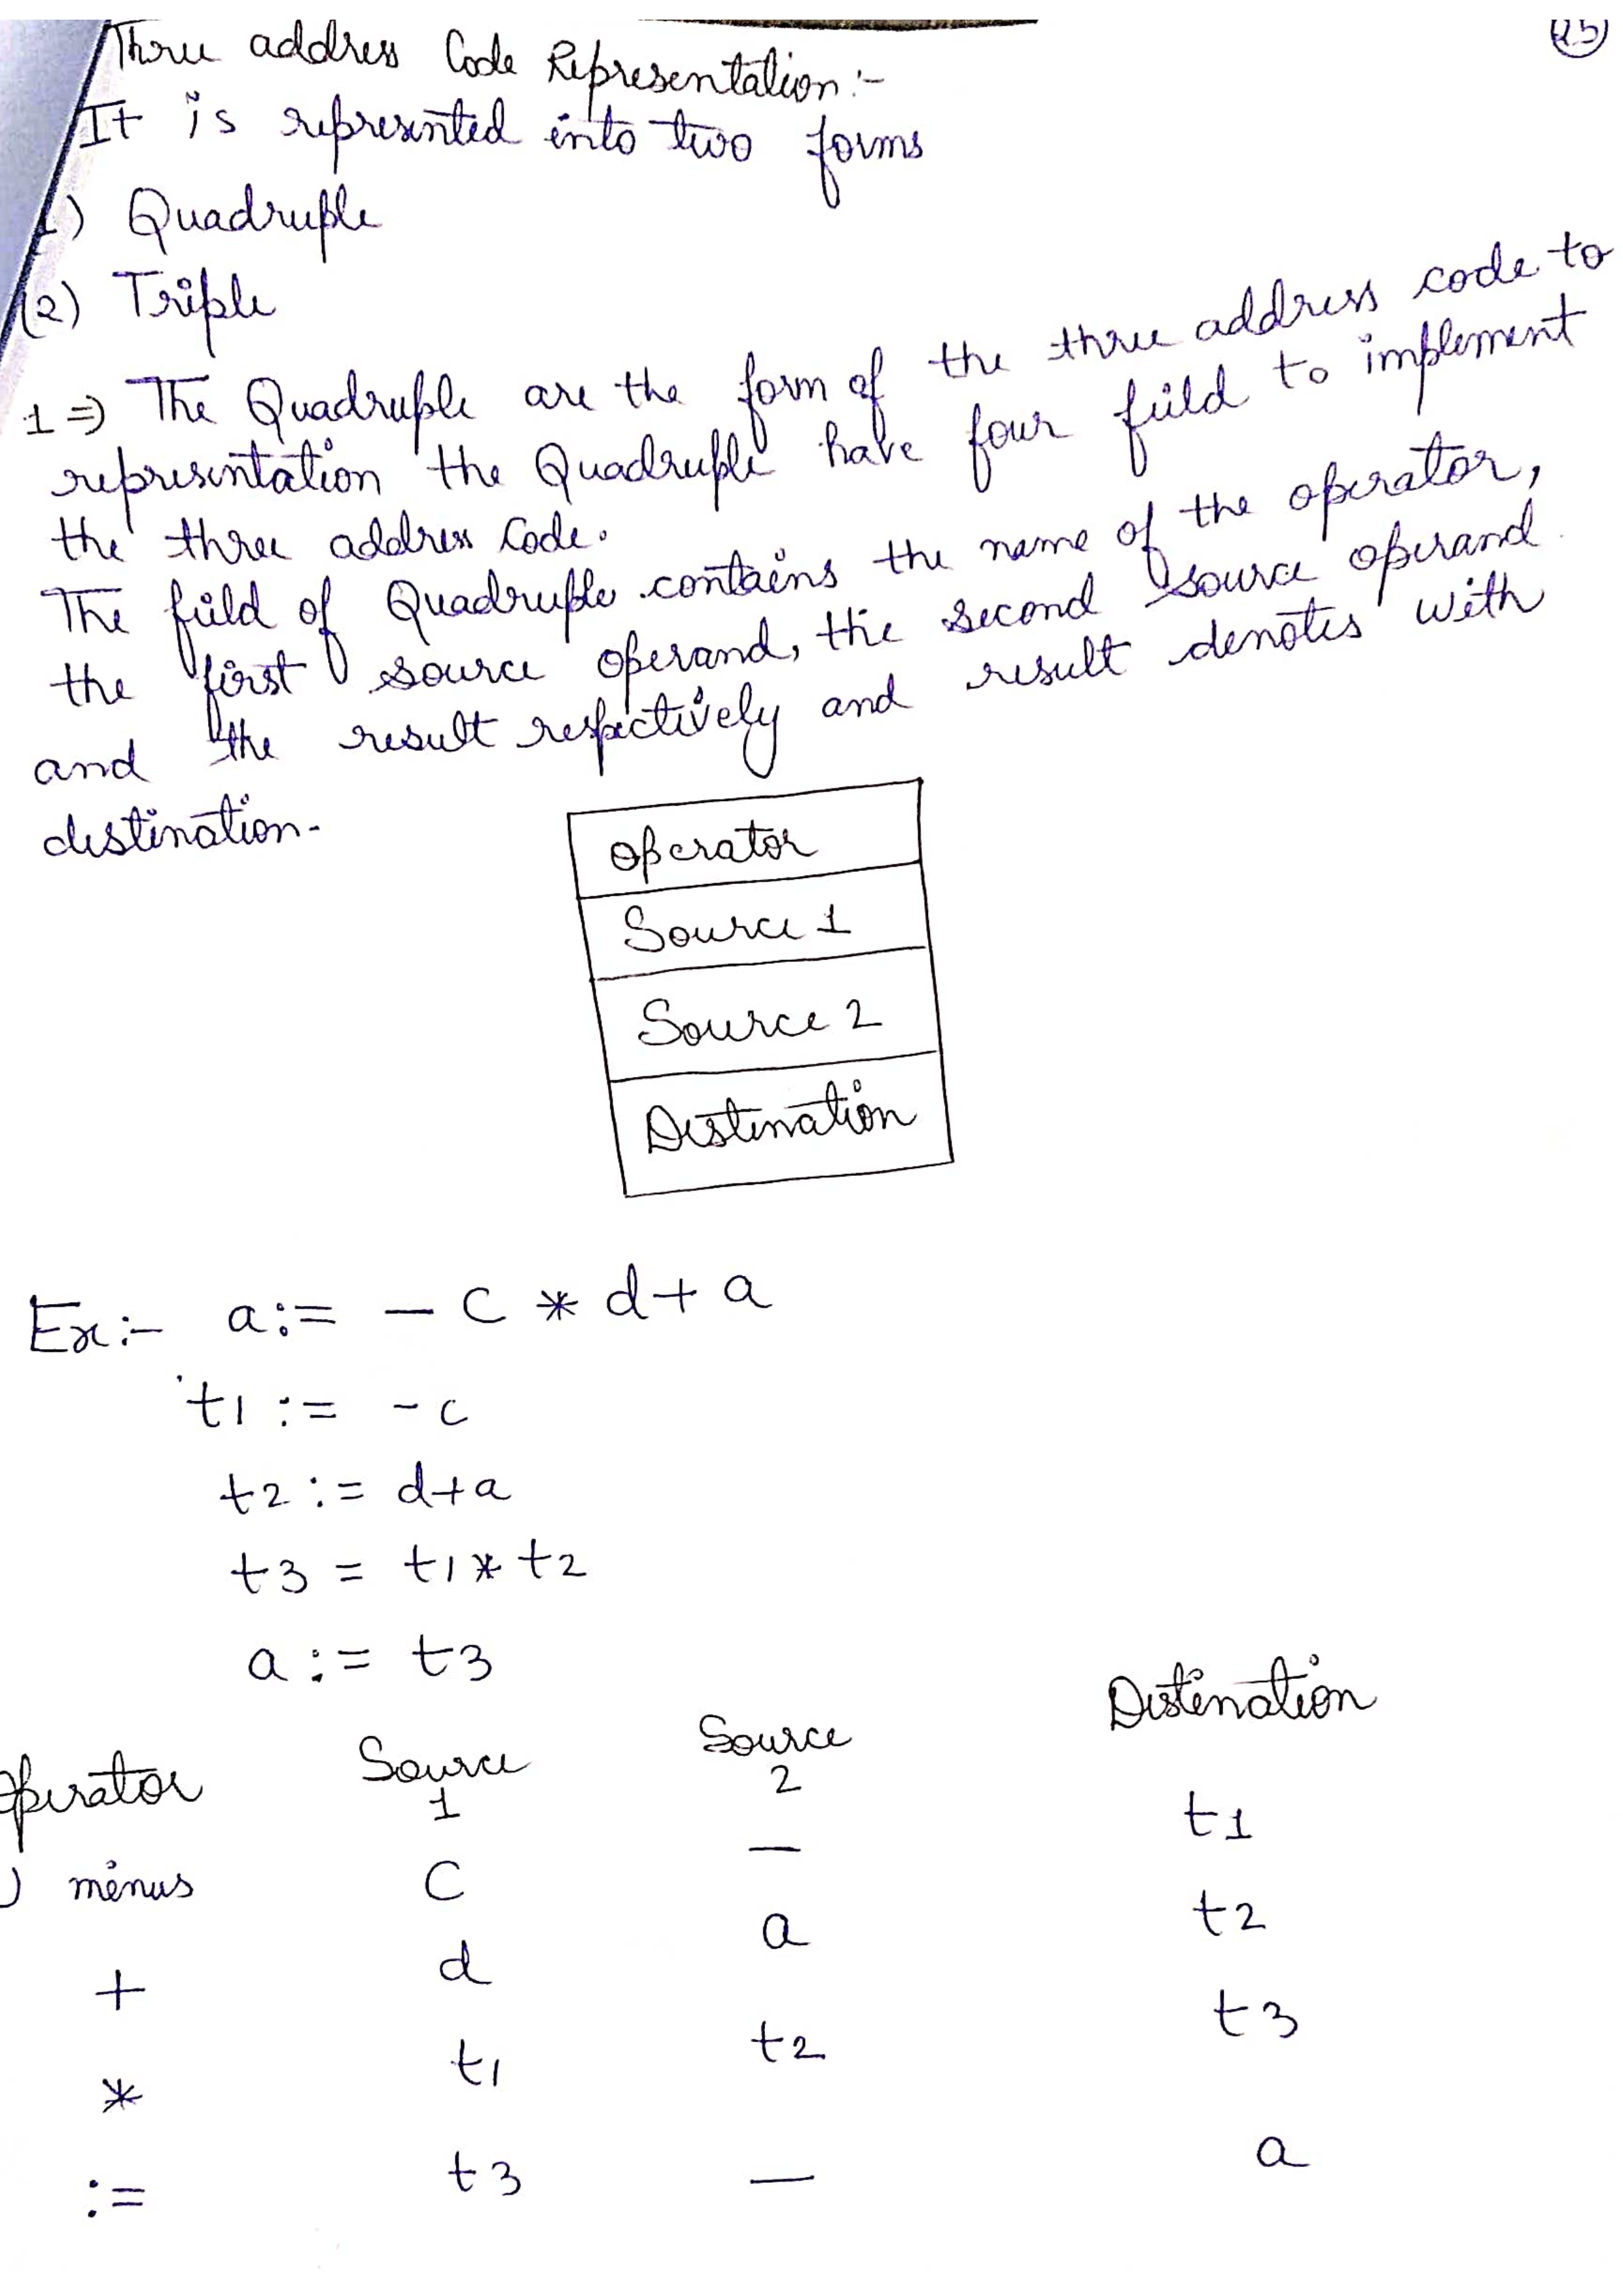 25
Three address Code Representation :-
It is represented into two forms
1) Quadruple
(2) Triple
1 => The Quadruple are the form of the three address code to
representation the Quadruple have four field to implement
the three address Code.
The field of Quadruple contains the name of the operator,
the first source operand, the second source operand
and the result respectively and result denotes with
destination.
operator
Source 1
Source 2
Destination
Ex:- a:= - c * d + a
t1 := - c
t2 := d+a
t3 = t1 * t2
a := t3
Operator Source 1 Source 2 Destination
) minus C — t1
+ d a t2
* t1 t2 t3
:= t3 — a